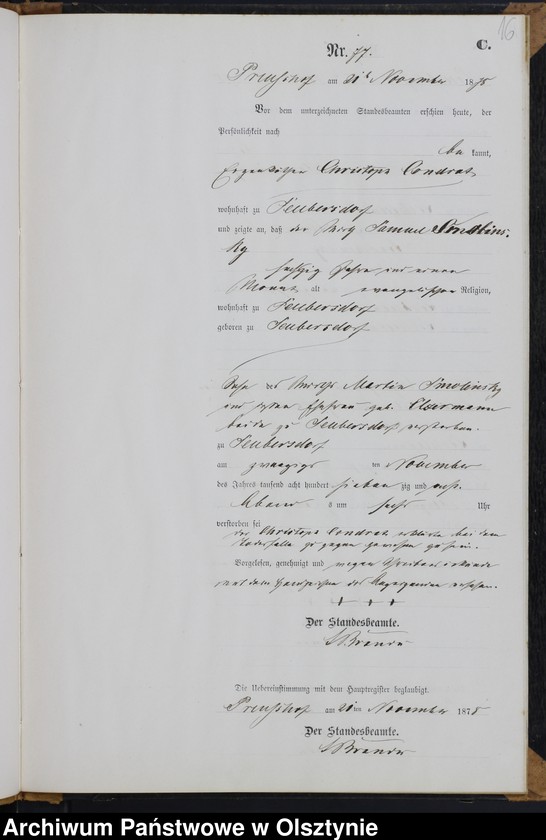 16
C.
Nr. 77.
am 21t November 1875
Vor dem unterzeichneten Standesbeamten erschien heute, der
Persönlichkeit nach
be kannt,
Christoph Condrat
wohnhaft zu Teubersdorf
und zeigte an, daß der Wirth Samuel Smolins-
ky
sechszig Jahre und einen
Monat alt evangelischer Religion,
wohnhaft zu Teubersdorf
geboren zu Teubersdorf
Sohn des Wirths Martin Smolinsky
und Ehefrau geb.
beide zu Teubersdorf verstorben.
zu Teubersdorf
am ten November
des Jahres tausend acht hundert sieben zig und
Abend s um sechs Uhr
verstorben sei
der Christoph Condrat erklärte bei dem
Todesfalle zugegen gewesen zu sein.
Vorgelesen, genehmigt und wegen
mit dem Handzeichen des versehen.
+ + +
Der Standesbeamte.
Die Uebereinstimmung mit dem Hauptregister beglaubigt.
am 21ten November 1875
Der Standesbeamte.
Archiwum Państwowe w Olsztynie